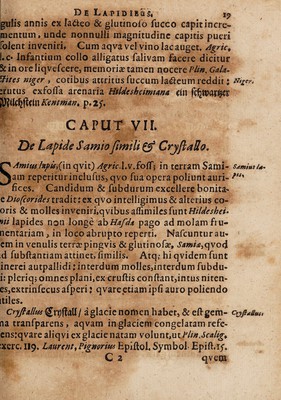 De Lapidibus, 19
gulis annis ex lacteo & glutinoso succo capit incre-
mentum, unde nonnulli magnitudine capitis pueri
solent inveniri. Cum aqva vel vino lac auget. Agric.
l. c. Infantium collo alligatus salivam facere dicitur
& in ore liqvescere, memoriæ tamen nocere Plin. Gala-
tites niger, cotibus attritus succum lacteum reddit: Niger.
erutus exfossa arenaria Hildesheimiana ein schwartzer
Milchstein Kentman, p. 25.
CAPUT VII.
De Lapide Samio simili & Crystallo.
SAmius lapis, (inqvit) Agric. l. v. foss: in terram Sami-
am reperitur inclusus, qvo sua opera poliunt auri-
fices. Candidum & subdurum excellere bonita-
te Dioscorides tradit: ex qvo intelligimus & alterius co-
loris & molles inveniri, qvibus assimiles sunt Hildeshei-
mii lapides non longè ab Hasda pago ad molam fru-
mentariam, in loco abrupto reperti. Nascuntur au-
tem in venulis terræ pingvis & glutinosæ, Samia, qvod
ad substantiam attinet, similis. Atq; hi qvidem sunt
cinerei aut pallidi: interdum molles, interdum subdu-
ri: pleriq; omnes plani, ex crustis constant, intus niten-
tes, extrinsecus asperi: qvare etiam ipsi auro poliendo
utiles.
Crystallus Crystall / à glacie nomen habet, & est gem- Crystallus.
ma transparens, aqvam in glaciem congelatam refe-
rens: qvare aliqvi ex glacie natam volunt, ut Plin. Scalig.
exerc. 119. Laurent. Pignorius Epistol. Symbol. Epist. 15.
C 2 qvem